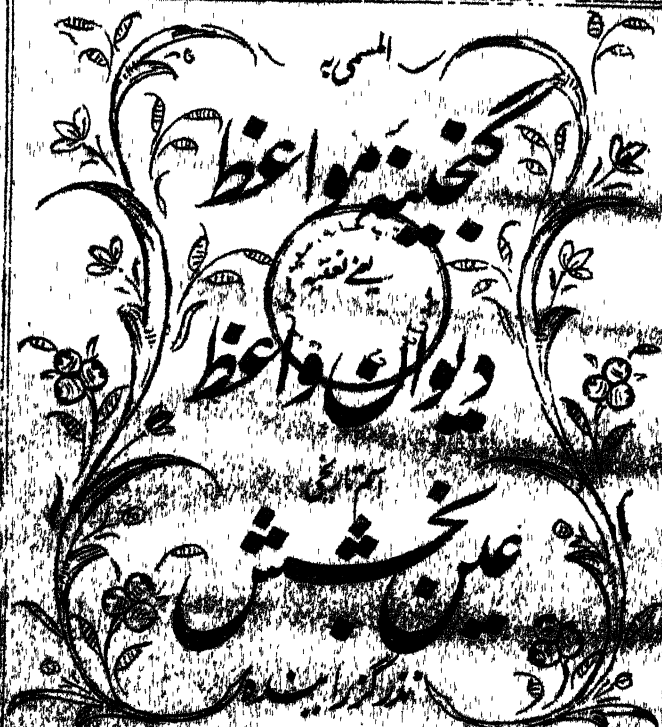 المسمی بہ
گنجینہ مواعظ
یعنے نعتیہ
دیوان واعظ
اسم تاریخی
عین بخشش